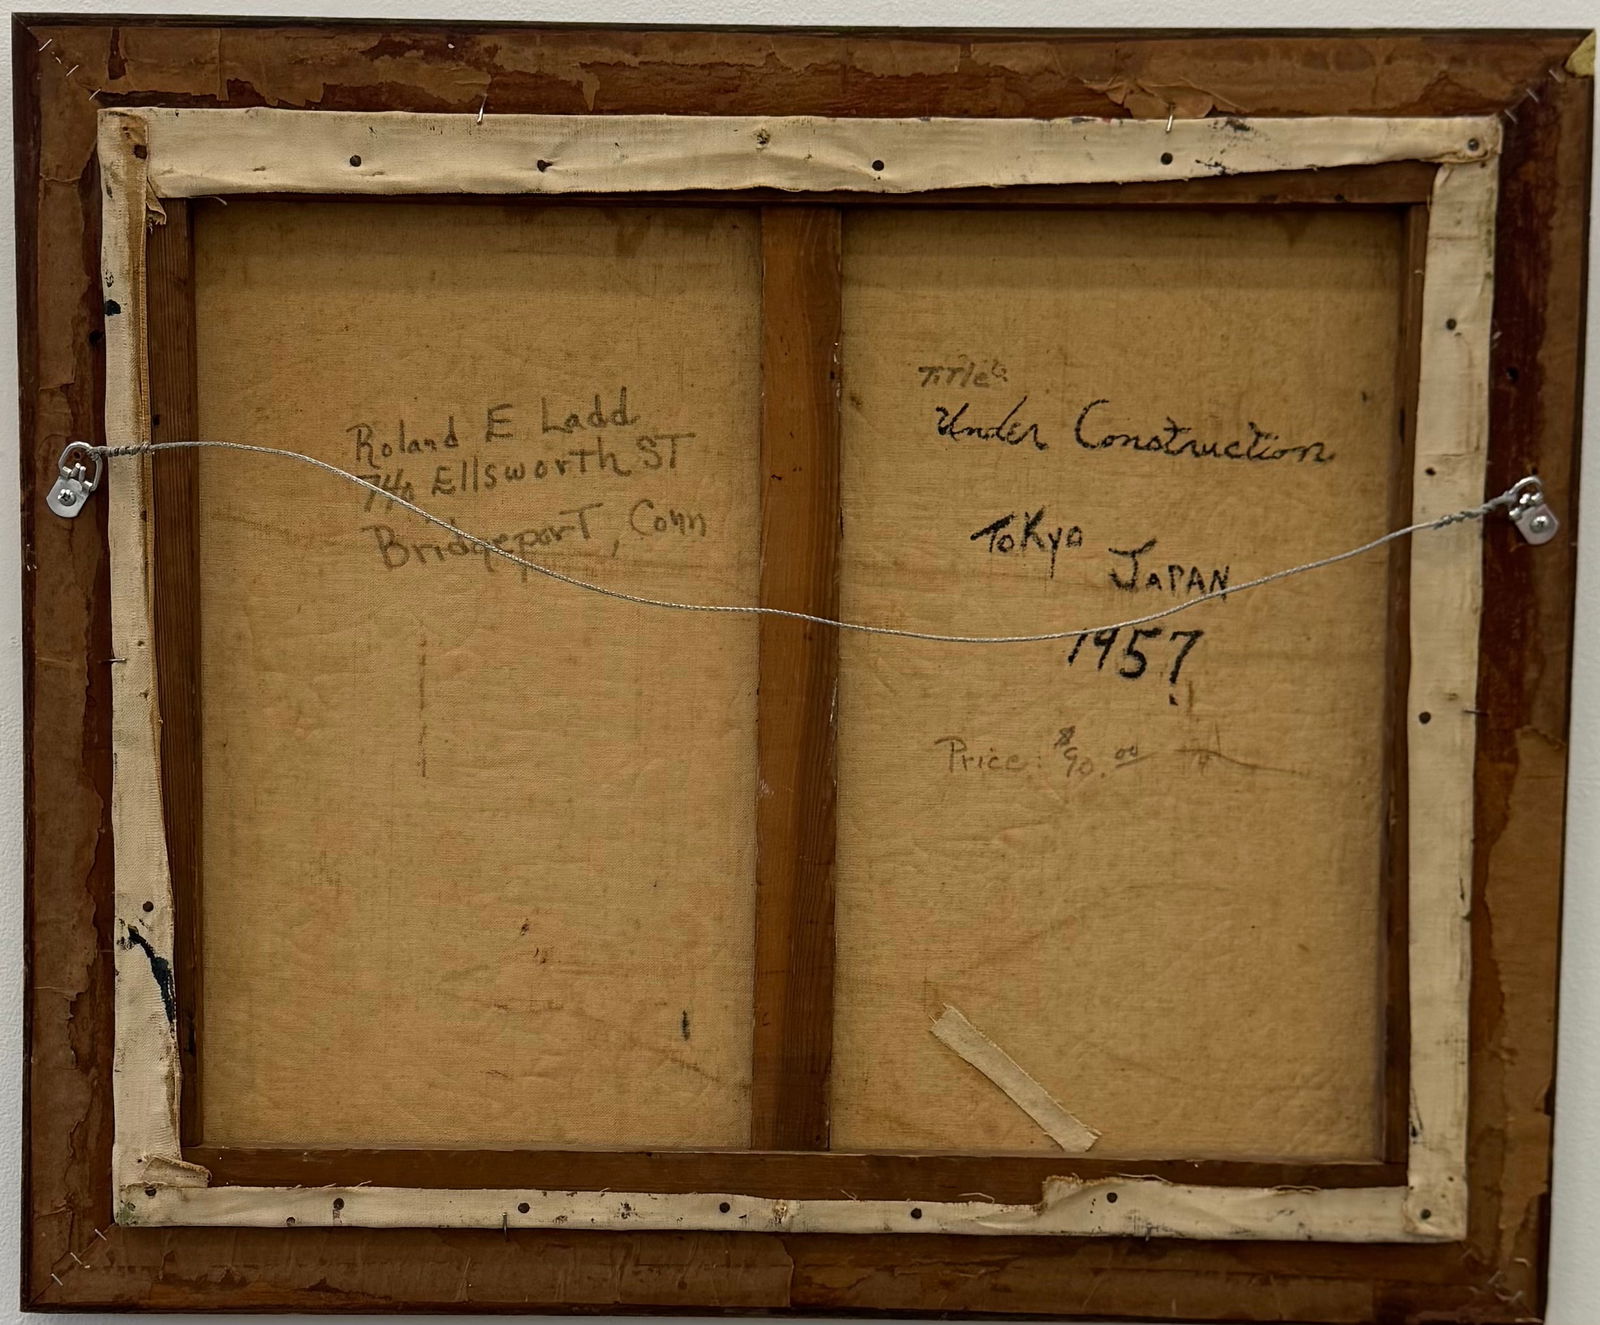 Roland E Ladd
Ellsworth ST
Bridgeport, Conn
Title:
Under Construction
Tokyo
JAPAN
1957
Price: $90.00